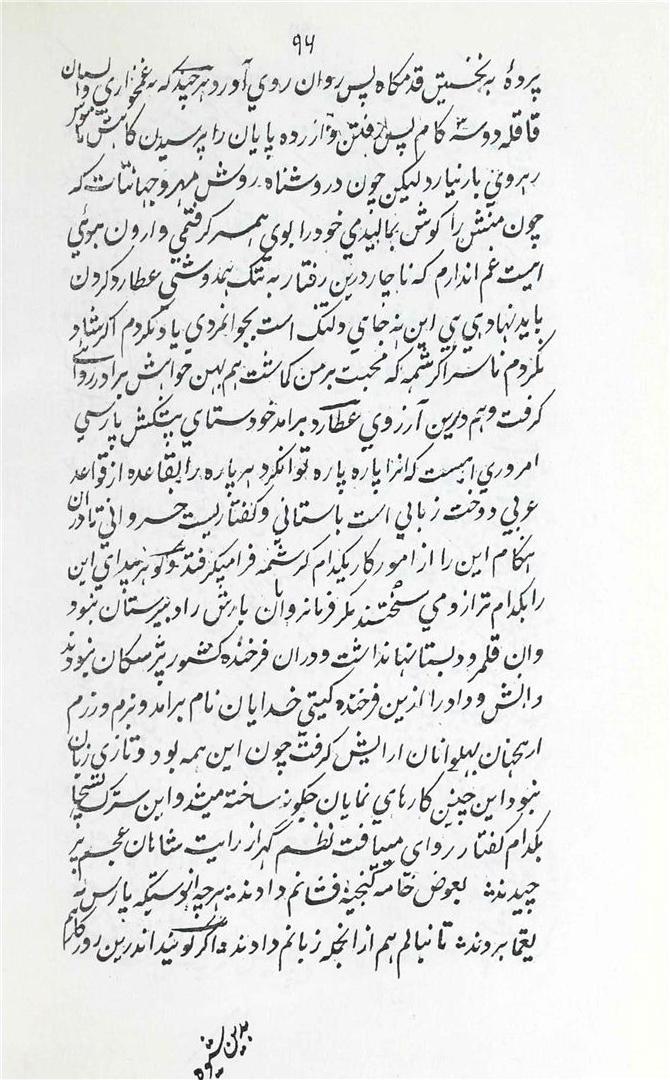 ۹۶
پردۀ به نخستین قدمگاه پس روان روي آورد هر چند که به غمخواري وا پسمان
قافله دوسه کام پس رفتن و از رده پایان را پرسیدن کاهش
رهروي بار نیارد لیکن چون در وشناه روش مهر و جهانتاب که
چون منش را کوش بمالیدي خود را بوي همسر کرفتمي وارون هوئي
است غم اندارم که ناچار درین رفتار به تنک همدوشتي عطارد کردن
باید نهاد هي هي این نه جاي دلتنک است بجوانمردي یاد نکردم اکر شاد
نکردم ناسزا کرشمه که محبت بر من کماشت هم بهین خواهش برادر
کرفت و هم درین آرزوي عطارد برامد خودستاي بیتکش پارسي
امروزي است که انرا پاره پاره توانکرد هر پاره را بقاعده از قواعد
عربي دوخت زباني است باستاني و کفتاریست خسرواني تا دران
هنکام این را از امور کار بکدام کرشمه فرا میکرفتند و کوهر هیداي این
را بکدام ترازو مي سختند مکر فرمانروان پارش را دبیرستان نبود
وان قلمرو دبستانها نداشت و دران فرخنده کشور پزشکان نبودند
دانش و داد را ازین فرخنده کیتي خدایان نام برامد و بزم و رزم
ازهمنان پهلوانان ارایش کرفت چون این همه بود و تازي زبان
نبود این چنین کارهاي نمایان چکونه ساخته میشد و این سترک
بکدام کفتار رواي مییافت نظم کهر از رایت شاهان عجم بر
چیدند بعوض خامه کنجینه فشانم دادند هر چه از دستکه پارس به
یغما بردند تا بنالم هم از انجمله زبانم دادند اکر کویند اندرین روزکار هم